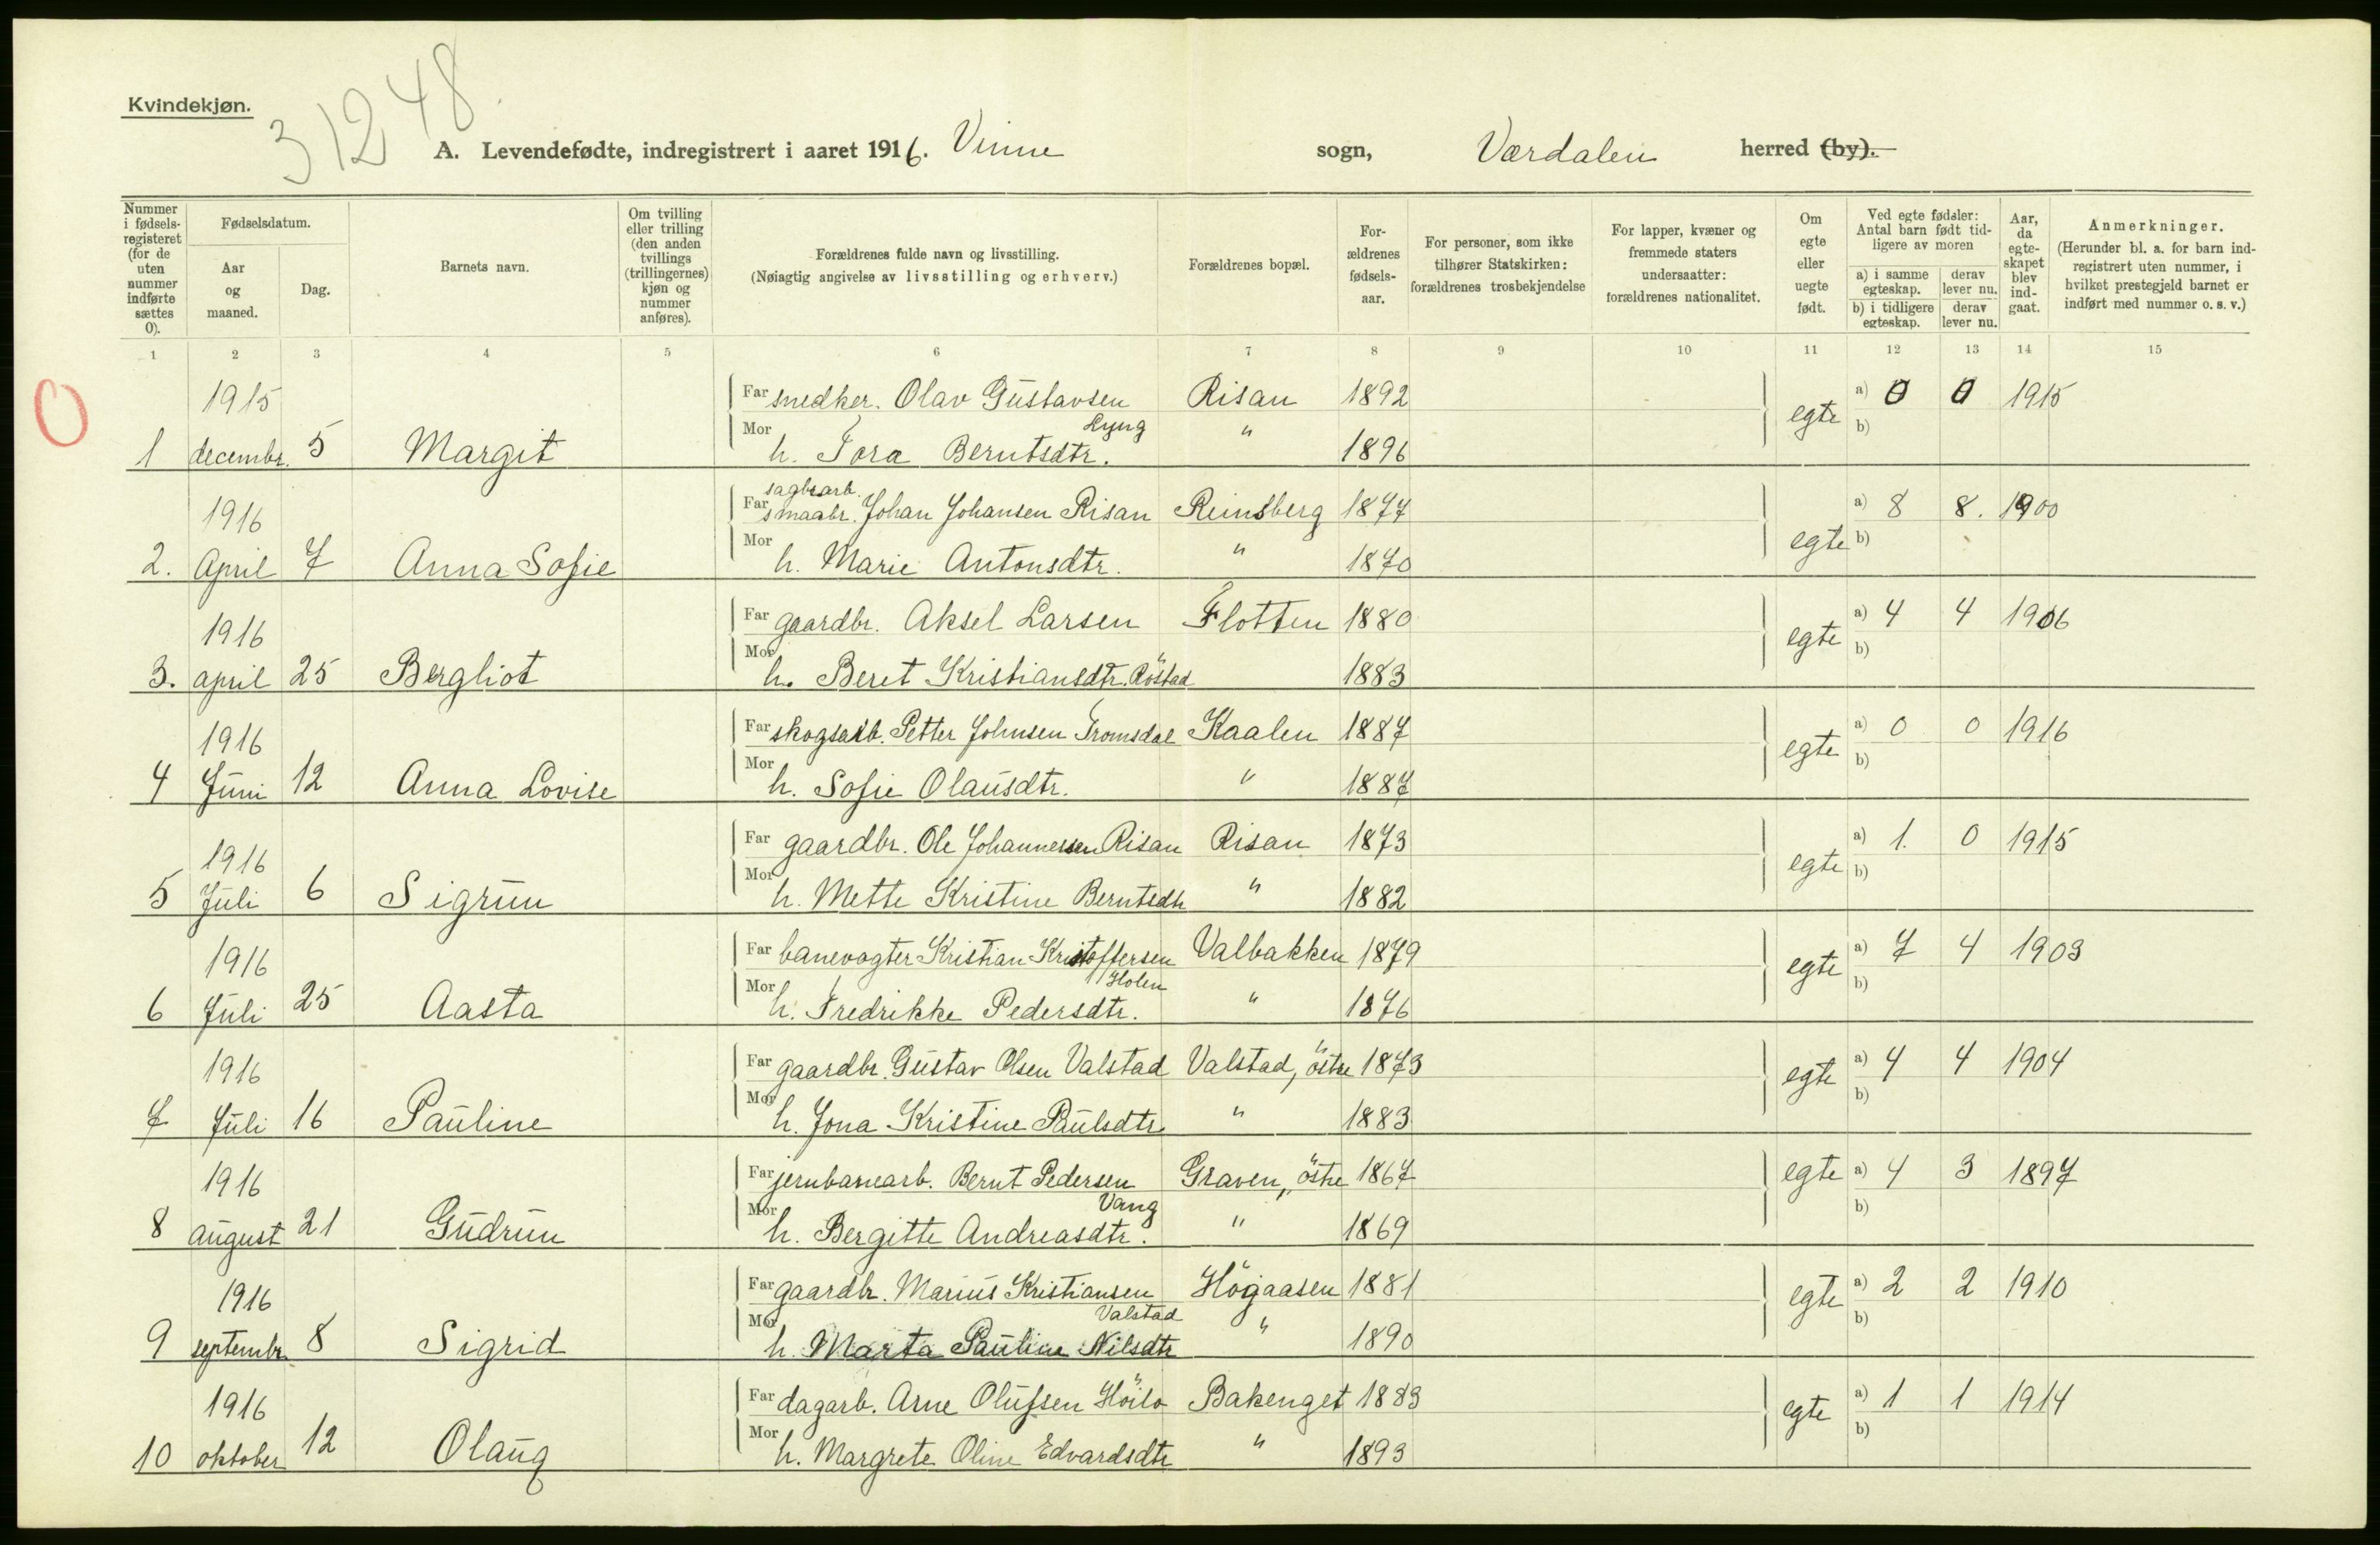 Kvindekjøn.
31248
A. Levendefødte, indregistrert i aaret 1916. Vinne sogn, Værdalen herred (by).
Nummer i fødselsregisteret (for de uten nummer indførte sættes 0).
Fødselsdatum.
Aar og maaned.
Dag.
Barnets navn.
Om tvilling eller trilling (den anden tvillings (trillingernes) kjøn og nummer anføres).
Forældrenes fulde navn og livsstilling.
(Nøiagtig angivelse av livsstilling og erhverv.)
Forældrenes bopæl.
Forældrenes fødselsaar.
For personer, som ikke tilhører Statskirken: forældrenes trosbekjendelse
For lapper, kvæner og fremmede staters undersaatter: forældrenes nationalitet.
Om egte eller uegte født.
Ved egte fødsler: Antal barn født tidligere av moren
a) i samme egteskap. derav lever nu.
b) i tidligere egteskap. derav lever nu.
Aar, da egteskapet blev indgaat.
Anmerkninger.
(Herunder bl. a. for barn indregistrert uten nummer, i hvilket prestegjeld barnet er indført med nummer o. s. v.)
1 2 3 4 5 6 7 8 9 10 11 12 13 14 15
0
1915 Far snedker. Olav Gustavsen Risan 1892 egte a) 0 0 1915
Lyng
1 decembr. 5 Margit Mor h. Tora Berntsdtr. " 1896 b)
sagbrarb.
1916 Far smaabr. Johan Johansen Risan Reinsberg 1877 egte a) 8 8. 1900
2. April 7 Anna Sofie Mor h. Marie Antonsdtr. " 1870 b)
1916 Far gaardbr. Aksel Larsen Flotten 1880 egte a) 4 4 1906
3. april 25 Bergliot Mor h. Beret Kristiansdtr. Röstad 1883 b)
1916 Far skogsarb. Petter Johnsen Tromsdal Kaalen 1887 egte a) 0 0 1916
4 Juni 12 Anna Lovise Mor h. Sofie Olausdtr. " 1887 b)
1916 Far gaardbr. Ole Johannessen Risan Risan 1873 egte a) 1. 0 1915
5 Juli 6 Sigrun Mor h. Mette Kristine Berntsdtr " 1882 b)
1916 Far banevogter Kristian Kristoffersen Valbakken 1879 egte a) 7 4 1903
Holen
6 Juli 25 Aasta Mor h. Fredrikke Pedersdtr. " 1876 b)
1916 Far gaardbr. Gustav Olsen Valstad Valstad, östre 1873 egte a) 4 4 1904
7 Juli 16 Pauline Mor h. Jona Kristine Paulsdtr. " 1883 b)
1916 Far jernbanearb. Bernt Pedersen Graven, östre 1867 egte a) 4 3 1897
Vang
8 august 21 Gudrun Mor h. Bergitte Andreasdtr. " 1869 b)
1916 Far gaardbr. Marius Kristiansen Högaasen 1881 egte a) 2 2 1910
Valstad
9 septembr. 8 Sigrid Mor h. Marta Pauline Nilsdtr " 1890 b)
1916 Far dagarb. Arne Olufsen Höilo Bakenget 1883 egte a) 1 1 1914
10 oktober 12 Olaug Mor h. Margrete Oline Edvardsdtr " 1893 b)